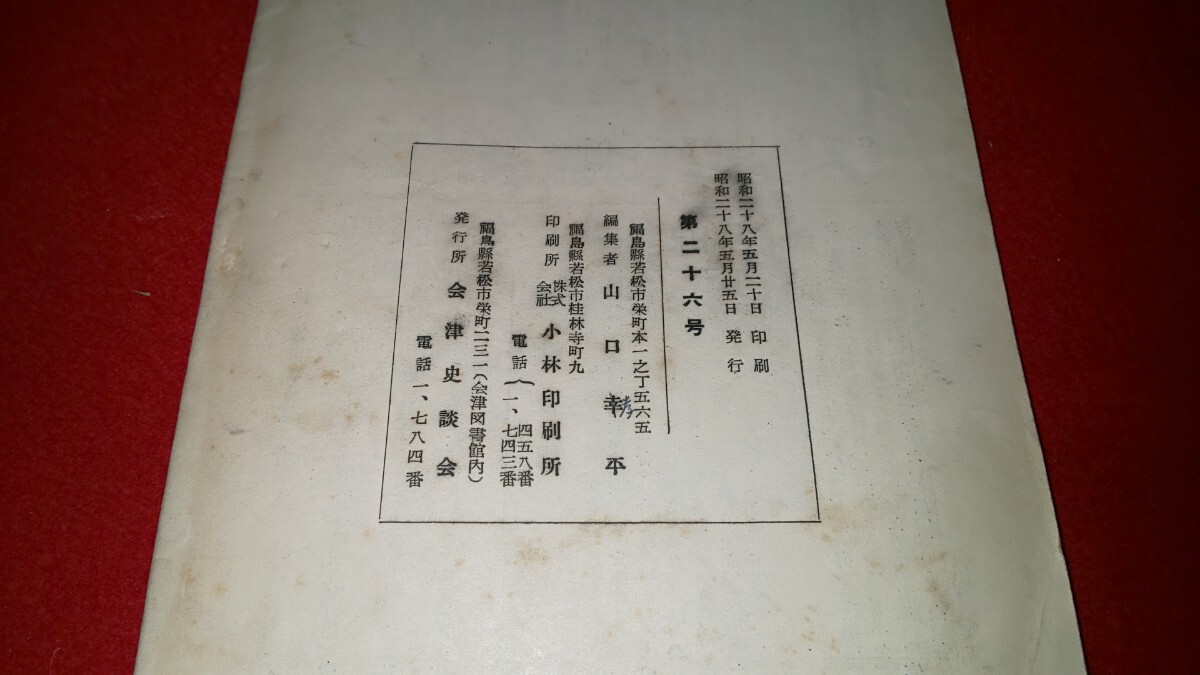 昭和二十八年五月二十日 印刷
昭和二十八年五月廿五日 発行
第二十六号
福島縣若松市栄町本一之丁五六五
編集者 山口幸平
孝
福島縣若松市桂林寺町九
印刷所 株式会社 小林印刷所
電話(四五八番
一、七四三番
福島縣若松市栄町二三一(会津図書館内)
発行所 会津史談会
電話一、七八四番